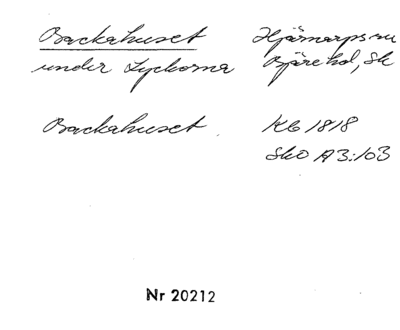 Backahuset Hjärnarps sn
under Lyckorna Bjäre hd, Sk
Backahuset Kb 1818
SkO A3:103
Nr 20212